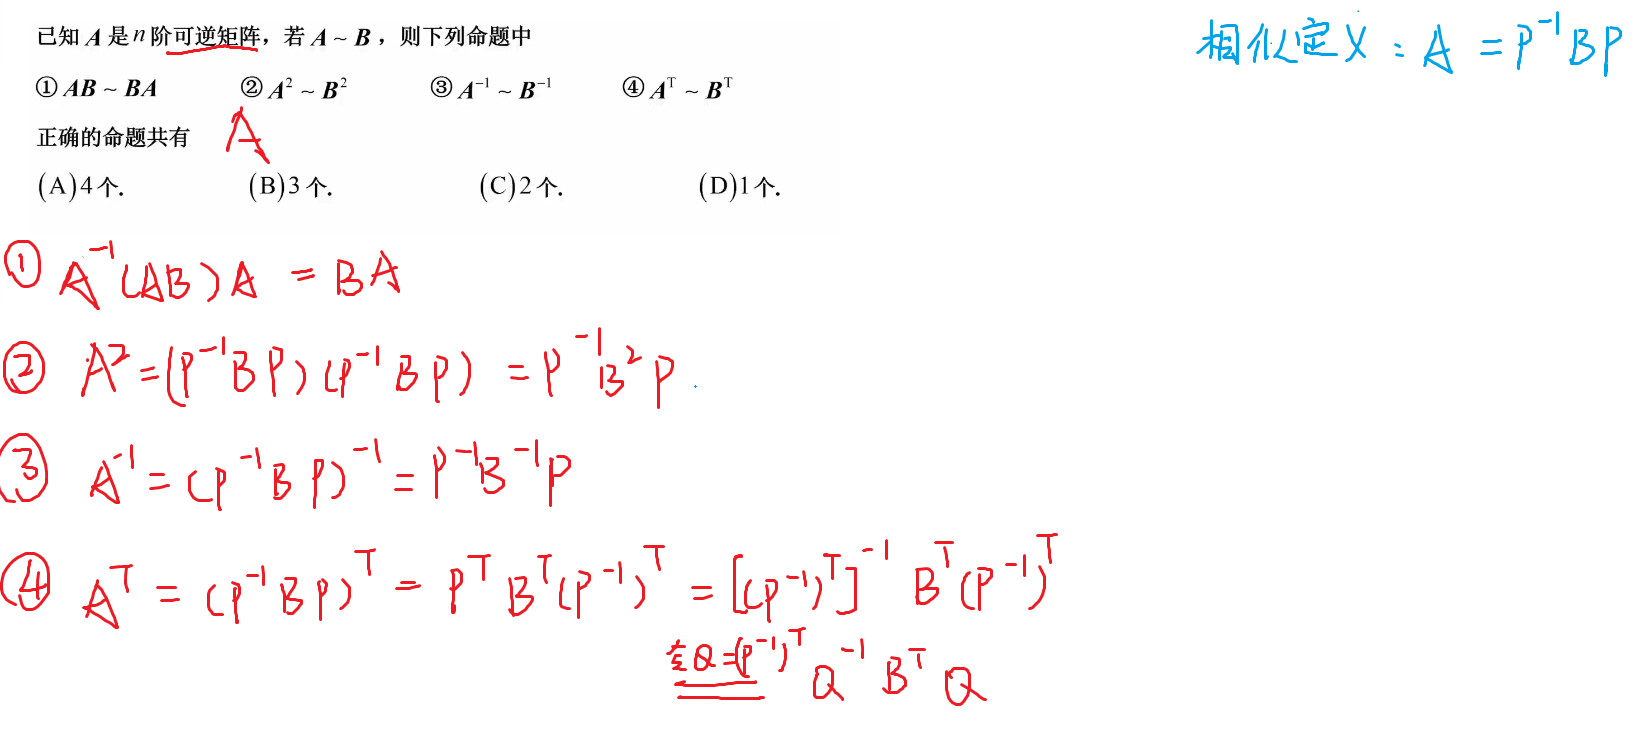 已知 A 是 n 阶可逆矩阵，若 A ~ B ，则下列命题中
相似定义：A = P⁻¹BP
① AB ~ BA ② A² ~ B² ③ A⁻¹ ~ B⁻¹ ④ Aᵀ ~ Bᵀ
正确的命题共有 A
(A)4个. (B)3个. (C)2个. (D)1个.
① A⁻¹(AB)A = BA
② A² = (P⁻¹BP)(P⁻¹BP) = P⁻¹B²P
③ A⁻¹ = (P⁻¹BP)⁻¹ = P⁻¹B⁻¹P
④ Aᵀ = (P⁻¹BP)ᵀ = PᵀBᵀ(P⁻¹)ᵀ = [(P⁻¹)ᵀ]⁻¹Bᵀ(P⁻¹)ᵀ
令Q=(P⁻¹)ᵀ Q⁻¹BᵀQ